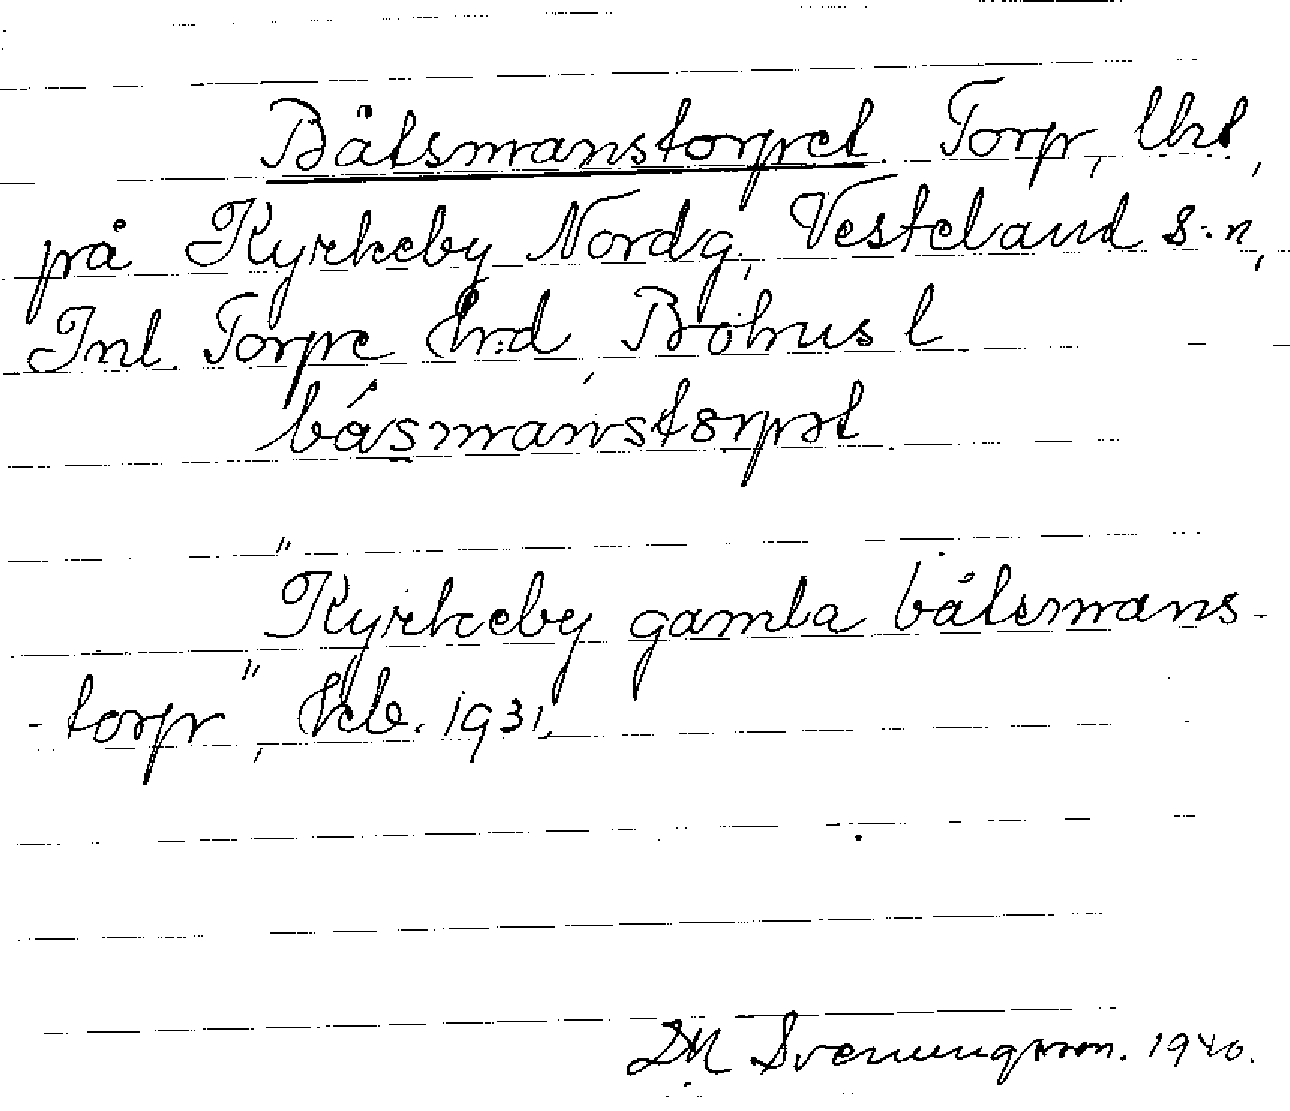 Båtsmanstorpet Torp, Uht,
på Kyrkeby Nordg, Västerland s:n,
Inl. Torpe hd, Bohus l
båsmanstorpet
"Kyrkeby gamla båtsmans-
-torp", hfb. 1931.
Svenungsson. 1940.